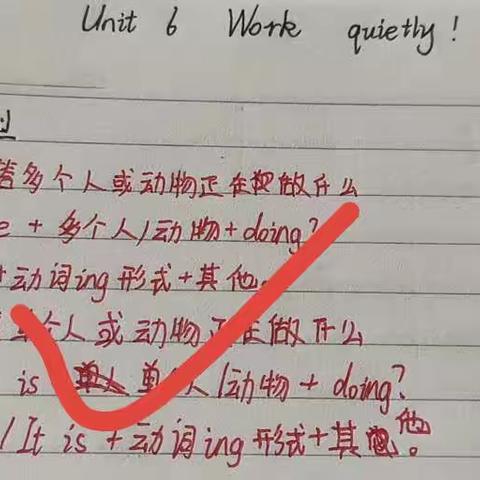 Unit 6 Work quietly!
多个人或动物正在做什么
e + 多个人/动物 + doing?
动词ing 形式 + 其他。
个人或动物正在做什么
is 单个人/动物 + doing?
/ It is + 动词ing 形式 + 其他。